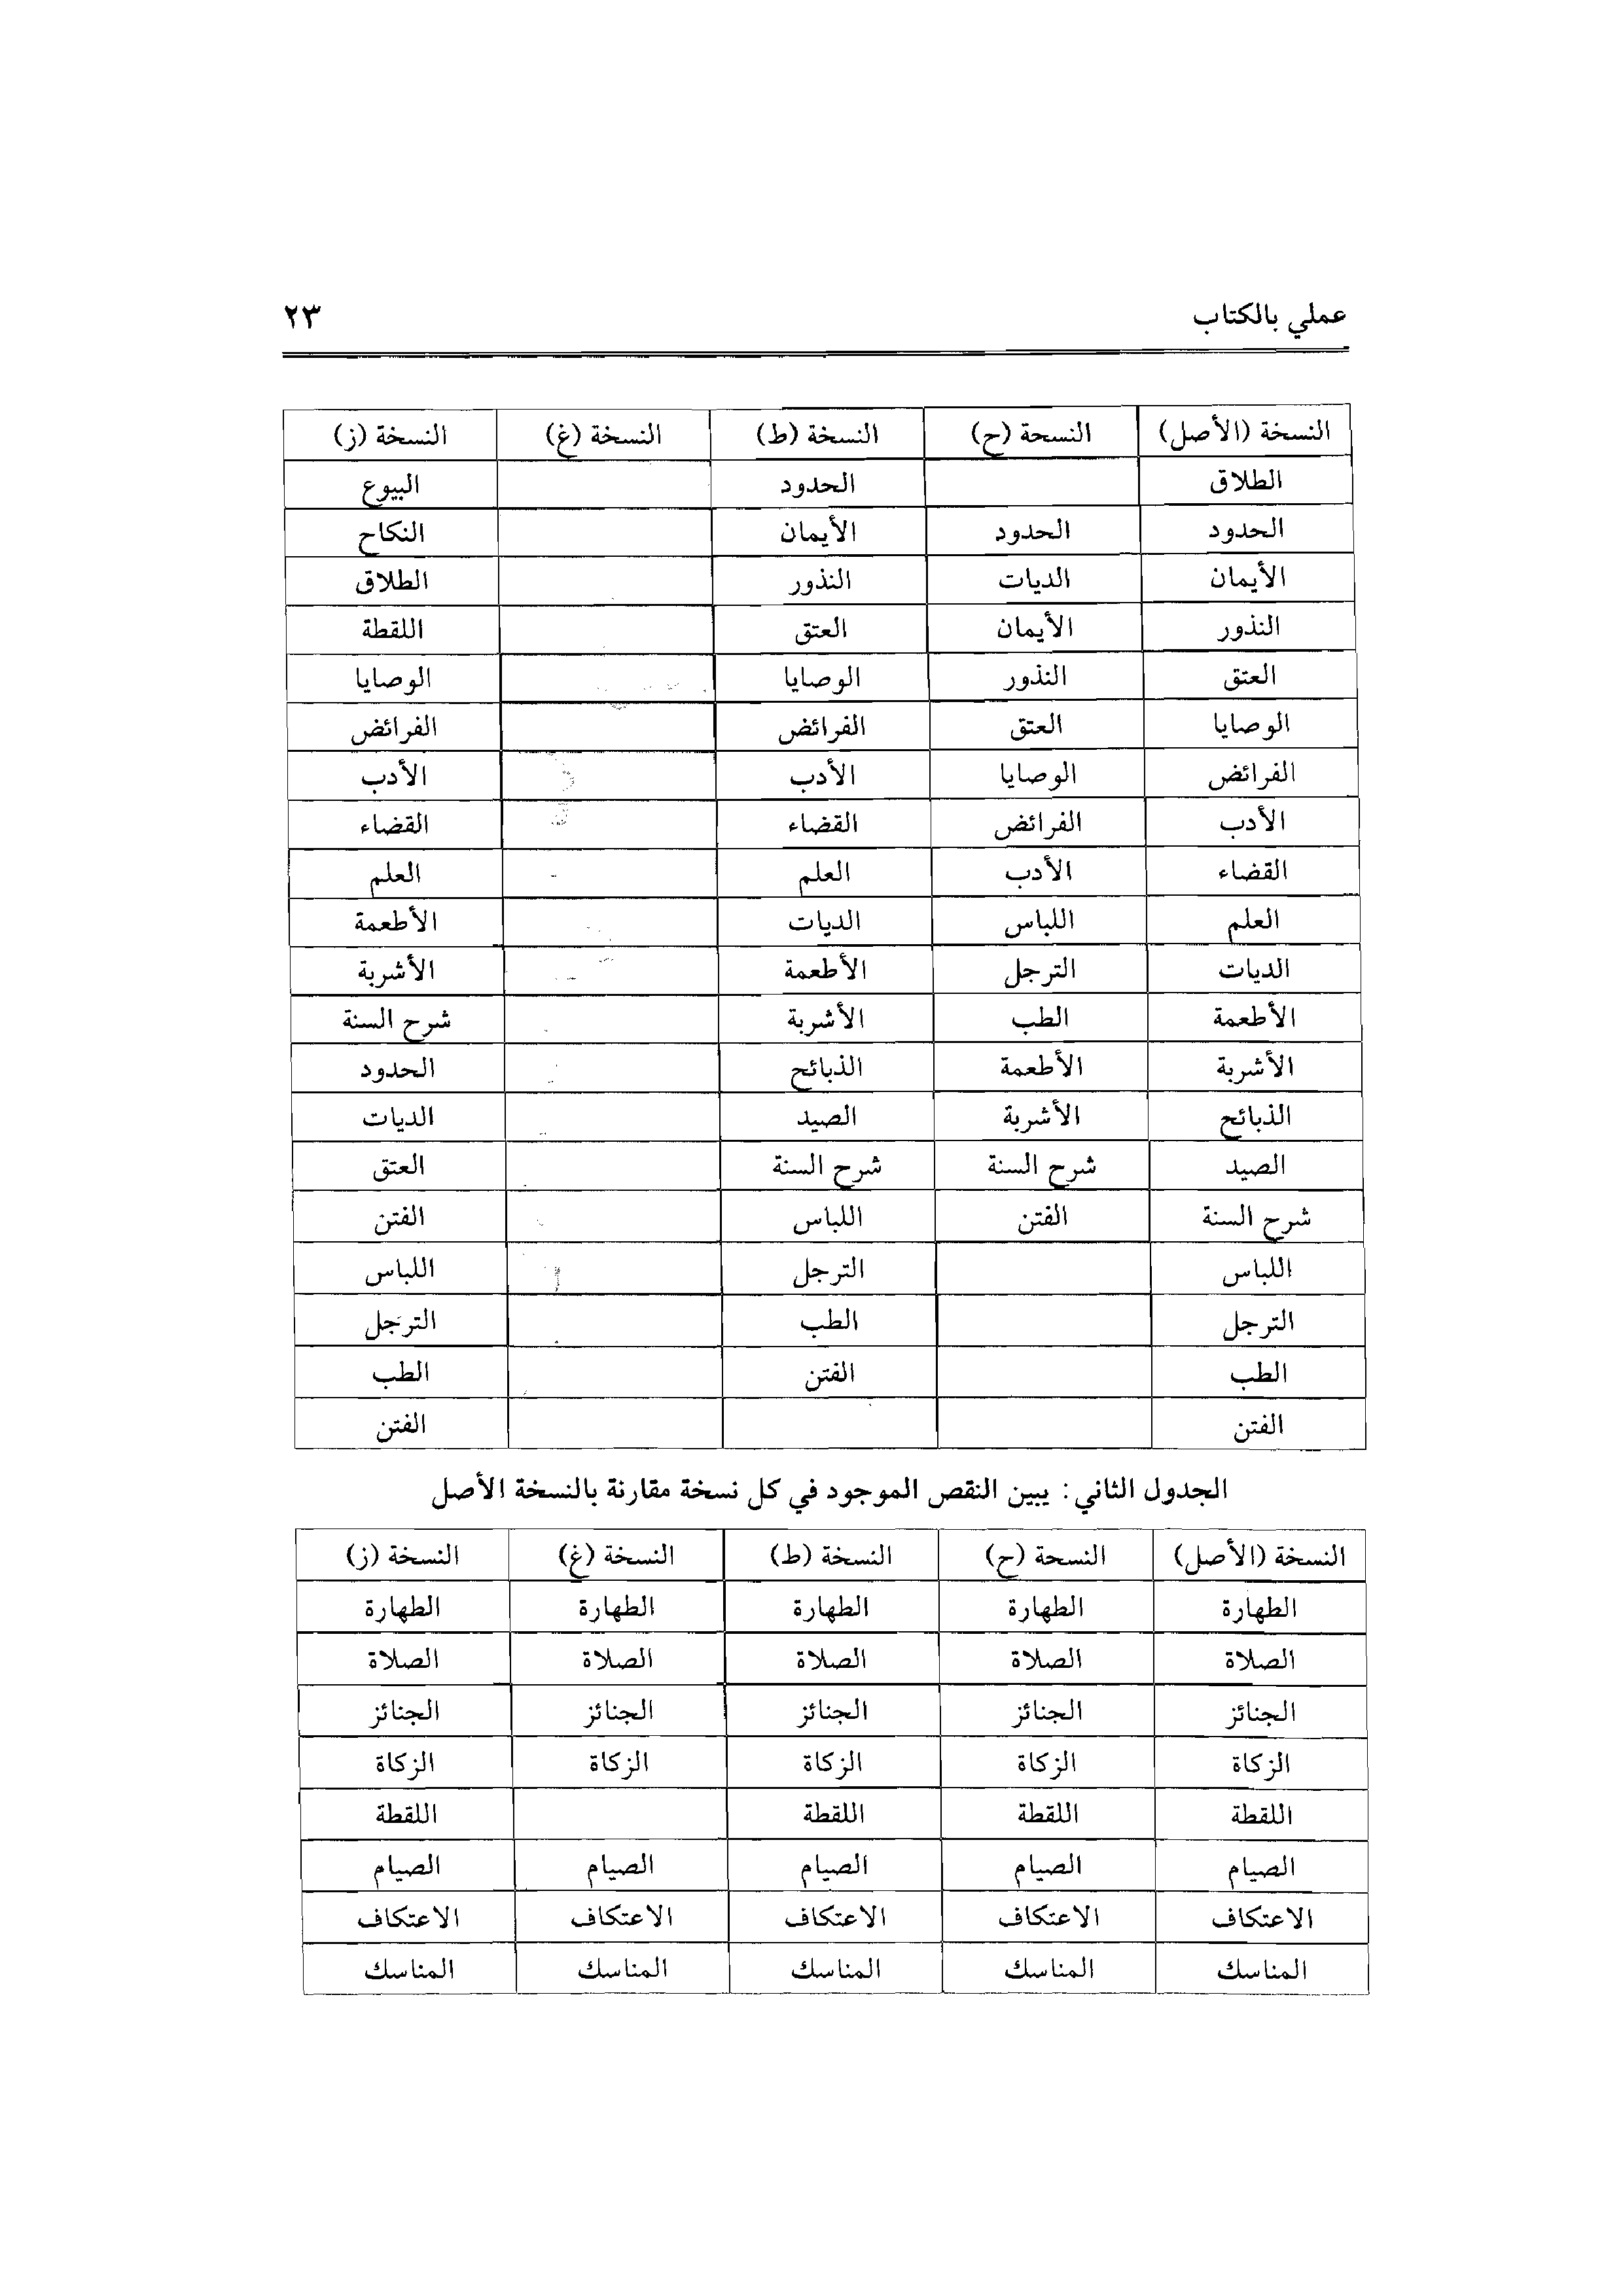 عملي بالكتاب ٢٣
النسخة (الأصل) النسخة (ح) النسخة (ط) النسخة (غ) النسخة (ز)
الطلاق الحدود البيوع
الحدود الحدود الأيمان النكاح
الأيمان الديات النذور الطلاق
النذور الأيمان العتق اللقطة
العتق النذور الوصايا الوصايا
الوصايا العتق الفرائض الفرائض
الفرائض الوصايا الأدب الأدب
الأدب الفرائض القضاء القضاء
القضاء الأدب العلم العلم
العلم اللباس الديات الأطعمة
الديات الترجل الأطعمة الأشربة
الأطعمة الطب الأشربة شرح السنة
الأشربة الأطعمة الذبائح الحدود
الذبائح الأشربة الصيد الديات
الصيد شرح السنة شرح السنة العتق
شرح السنة الفتن اللباس الفتن
اللباس الترجل اللباس
الترجل الطب الترجل
الطب الفتن الطب
الفتن الفتن
الجدول الثاني: يبين النقص الموجود في كل نسخة مقارنة بالنسخة الأصل
النسخة (الأصل) النسخة (ح) النسخة (ط) النسخة (غ) النسخة (ز)
الطهارة الطهارة الطهارة الطهارة الطهارة
الصلاة الصلاة الصلاة الصلاة الصلاة
الجنائز الجنائز الجنائز الجنائز الجنائز
الزكاة الزكاة الزكاة الزكاة الزكاة
اللقطة اللقطة اللقطة اللقطة
الصيام الصيام الصيام الصيام الصيام
الاعتكاف الاعتكاف الاعتكاف الاعتكاف الاعتكاف
المناسك المناسك المناسك المناسك المناسك